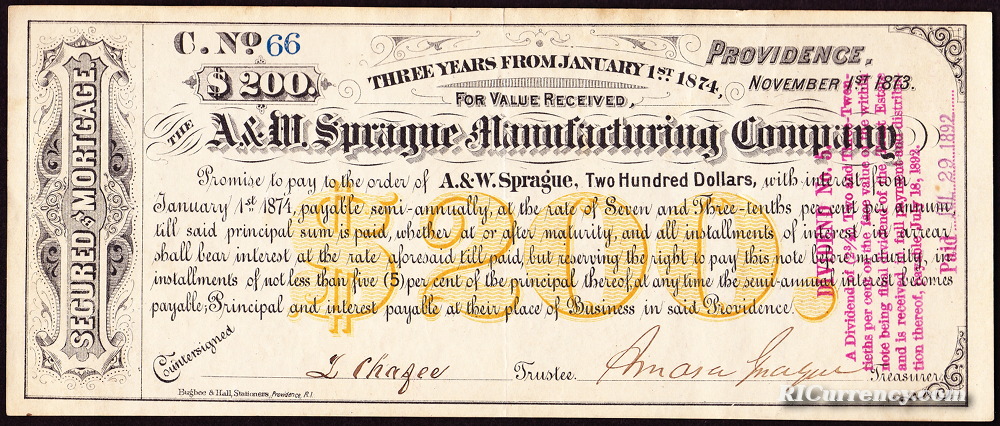 C. No 66
$200.
SECURED BY MORTGAGE
PROVIDENCE,
NOVEMBER 1ST 1873.
THREE YEARS FROM JANUARY 1ST 1874,
FOR VALUE RECEIVED,
THE
A. & W. Sprague Manufacturing Company
Promise to pay to the order of A. & W. Sprague, Two Hundred Dollars, with interest from
January 1st 1874, payable semi-annually, at the rate of Seven and Three-tenths per cent per annum
till said principal sum is paid, whether at or after maturity, and all installments of interest in arrear
shall bear interest at the rate aforesaid till paid, but reserving the right to pay this note before maturity, in
installments of not less than five (5) per cent of the principal thereof, at any time the semi-annual interest becomes
payable; Principal and interest payable at their place of Business in said Providence.
$200
Countersigned
Z Chafee
Trustee.
Amasa Sprague
Treasurer.
Bugbee & Hall, Stationers, Providence, R.I.
DIVDEND No. 5.
A Dividend of (2 3/20) Two and Three-Twen-
tieths per cent on the face value of the within
note being final dividend of the Trust Estate
and is received in full payment and distribu-
tion thereof, payable July 18, 1892.
Paid 29 1892
RICurrency.com